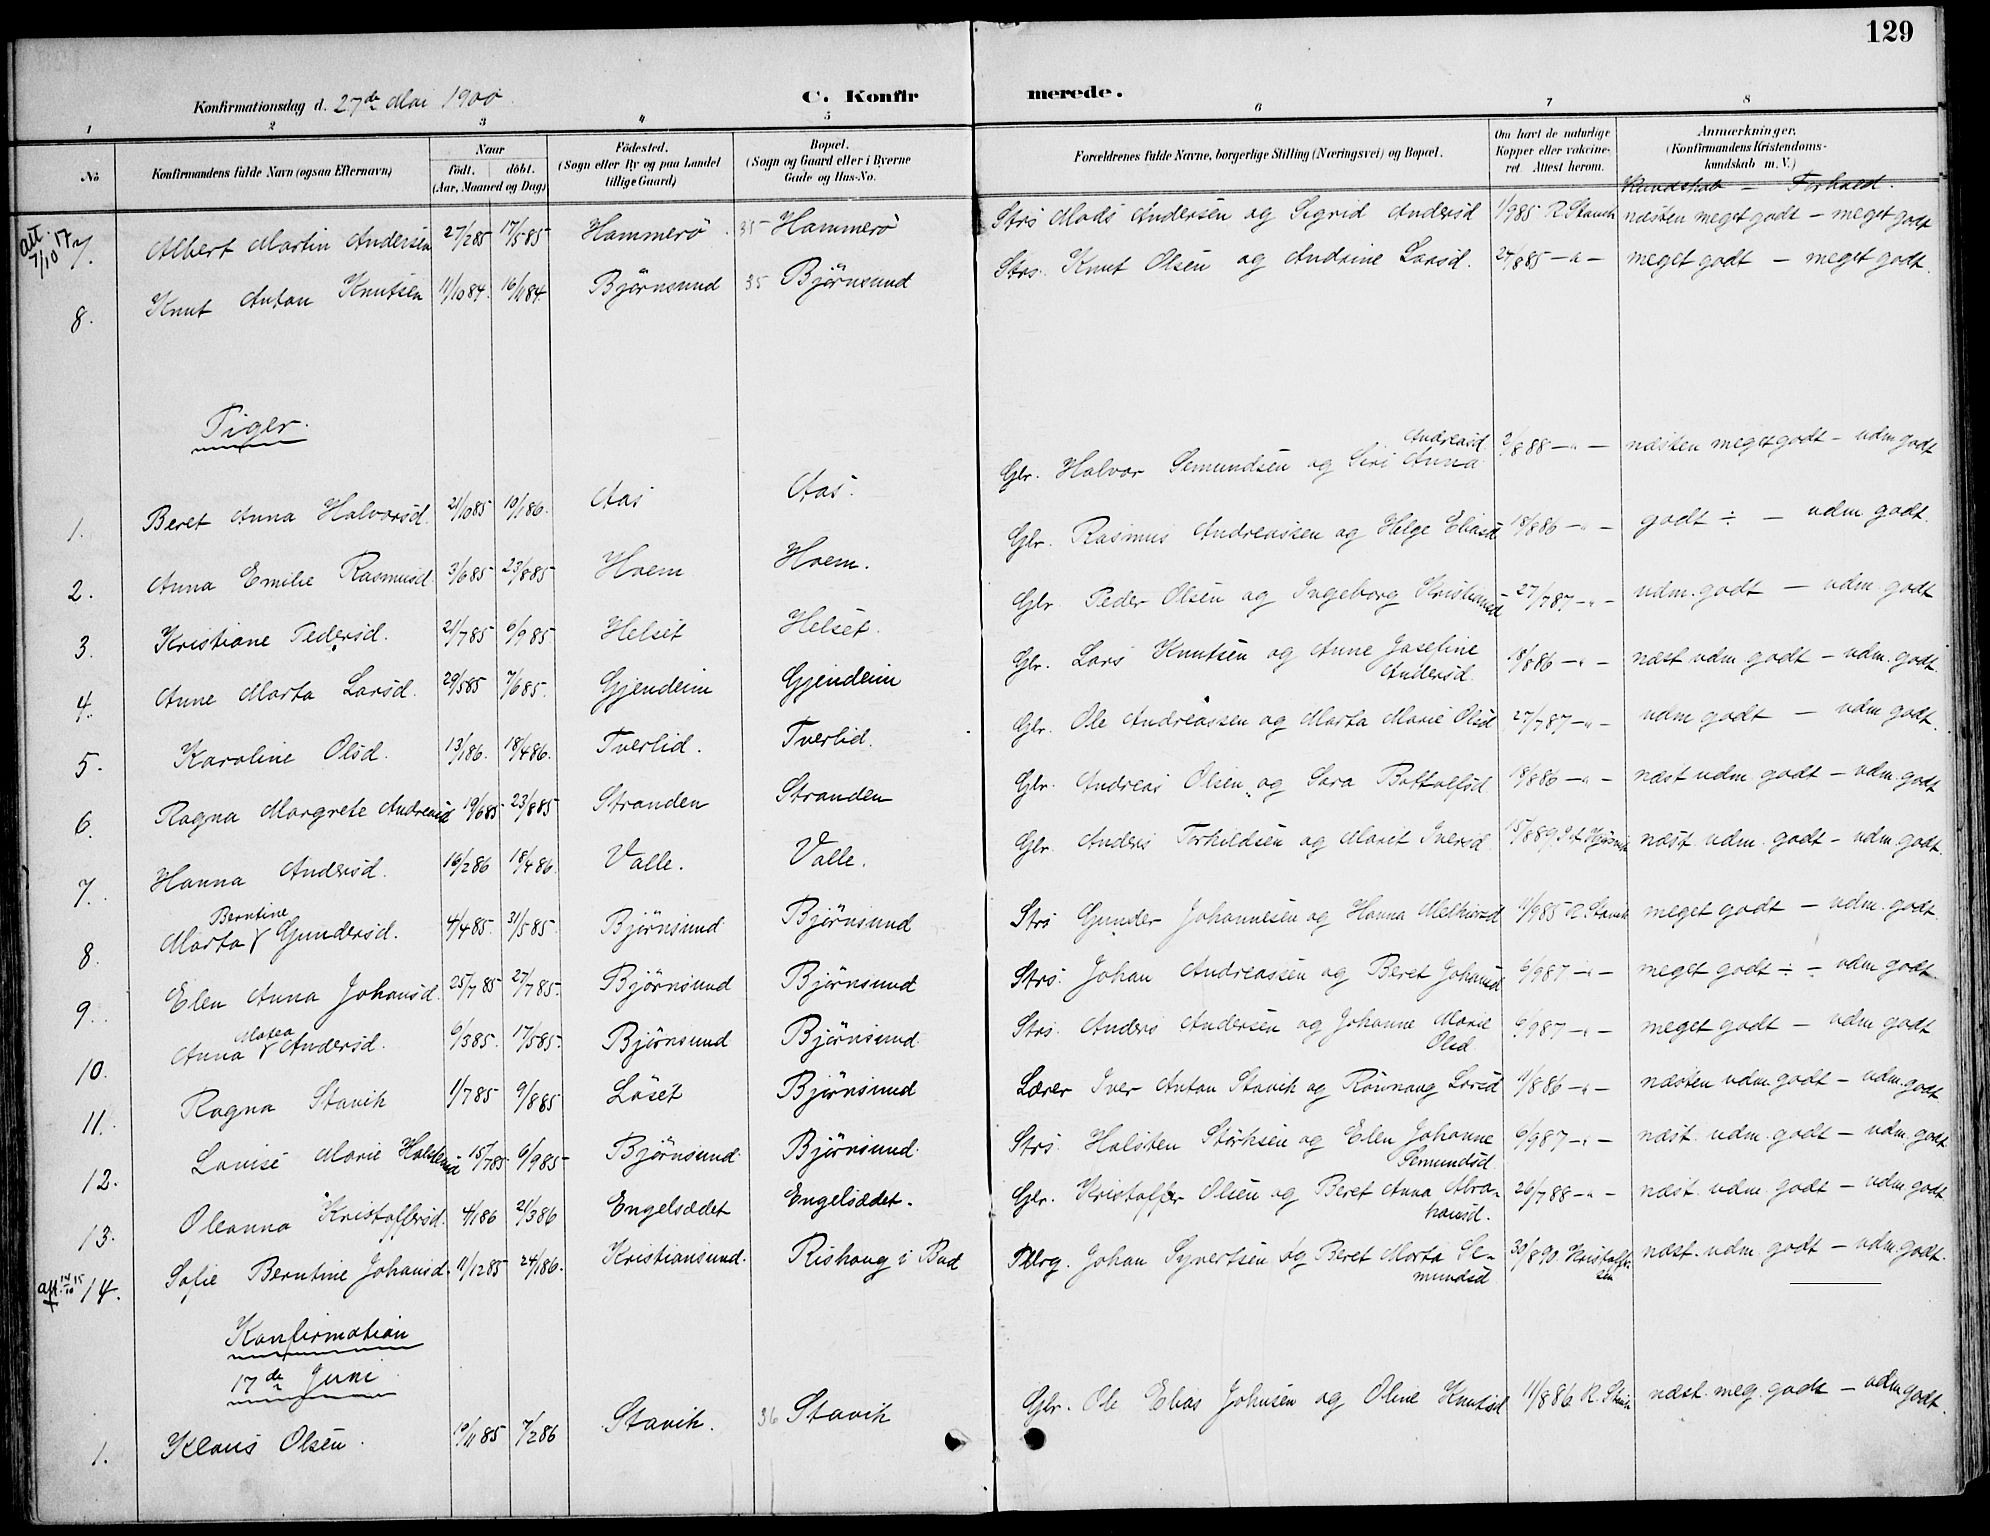 129
Konfirmationsdag d. 27de Mai 1900. C. Konfirmerede.
1 2 3 4 5 6 7 8
No Konfirmandens fulde Navn (ogsaa Efternavn) Naar født. døbt. (Aar, Maaned og Dag) Fødested. (Sogn eller By og paa Landet tillige Gaard) Bopæl. (Sogn og Gaard eller i Byerne Gade og Hus-No. Forældrenes fulde Navne, borgerlige Stilling (Næringsvei) og Bopæl. Om havt de naturlige Kopper eller vakcineret. Attest herom. Anmærkninger. (Konfirmandens Kristendomskundskab m. V.)
Kundskab — Forhold.
att. 7/10 17 7. Albert Martin Andersen 27/285 17/585 Hammerö 35 Hammerö Strs Mads Andersen og Sigrid Andersd 1/985 R Stavik næsten meget godt — meget godt
8. Knut Anton Knutsen 11/1084. 16/1184 Björnsund 35 Björnsund Strs. Knut Olsen og Andrine Larsd. 24/885 — " — meget godt — meget godt.
Piger.
1. Beret Anna Halvorsd. 21/1085 10/186. Aas Aas. Glr. Halvor Semundsen og Siri Anna Andreasd. 2/888 — " — næsten meget godt — udm godt
2. Anna Emilie Rasmusd 3/685 23/885 Hoem Hoem. Glr. Rasmus Andreassen og Helge Eliasd 18/886 — " — godt ÷ — udm. godt.
3. Kristiane Pedersd. 21/785 6/985 Helset Helset. Glr Peder Olsen og Ingeborg Kristiansd 27/787 — " — udm. godt — udm. godt
4. Anne Marta Larsd. 29/585 7/685. Gjendeim Gjendeim Glr. Lars Knutsen og Anne Jaseline Andersd. 18/886 — " — næst udm godt — udm. godt.
5. Karoline Olsd. 13/186. 18/486. Tverlid. Tverlid. Glr. Ole Andreassen og Marta Marie Olsd 27/787 — " — udm godt — udm godt.
6. Ragna Margrete Andreasd 19/685 23/885 Stranden Stranden Glr. Andreas Olsen og Sara Bottolfsd 18/886 — " — næst udm. godt — udm. godt
7. Hanna Andersd. 16/286 18/486. Valle. Valle. Glr. Anders Torkildsen og Marit Iversd 15/889 næst. udm. godt — udm. godt.
8. Marta Berntine Gundersd. 4/485. 31/585. Björnsund Björnsund Strs Gunder Johannesen og Hanna 1/985 R Stavik meget godt — udm. godt.
9. Elen Anna Johansd. 25/785 27/785. Björnsund Björnsund Strs. Johan Andreassen og Beret Johansd 6/987 — " — meget godt ÷ — udm godt
10. Anna Matea Andersd. 6/385. 17/585. Björnsund Björnsund Strs. Anders Andersen og Johanne Marie Olsd. 6/987 — " — meget godt — udm godt
11. Ragna Stavik 1/785 9/885 Löset Björnsund Lærer Iver Anton Stavik og Rönnaug Larsd 1/886 — " — næsten udm. godt — udm. godt
12. Lovise Marie Halstensd 15/785 6/985 Björnsund Björnsund. Strs. Halsten Störksen og Elen Johanne Semundsd 6/987 — " — næst. udm. godt — udm. godt
13. Oleanna Kristoffersd. 4/186 21/386 Engelsædet Engelsædet. Glr. Kristoffer Olsen og Beret Anna Abrahamsd. 26/788 — " — næst. udm. godt — udm. godt
att. 14/10 15 14. Sofie Berntine Johansd 11/1285 24/186. Kristiansund. Rishaug i Bud Johan Syvertsen og Beret Marta Semundsd 30/890. Kristoffersen næst. udm. godt — udm. godt.
Konfirmation
17de Juni
1. Klaus Olsen. 19/1185 7/286 Stavik. 36 Stavik Glr. Ole Elias Johnsen og Oline Knutsd 11/886 R. Stavik næst. meg. godt — udm godt.